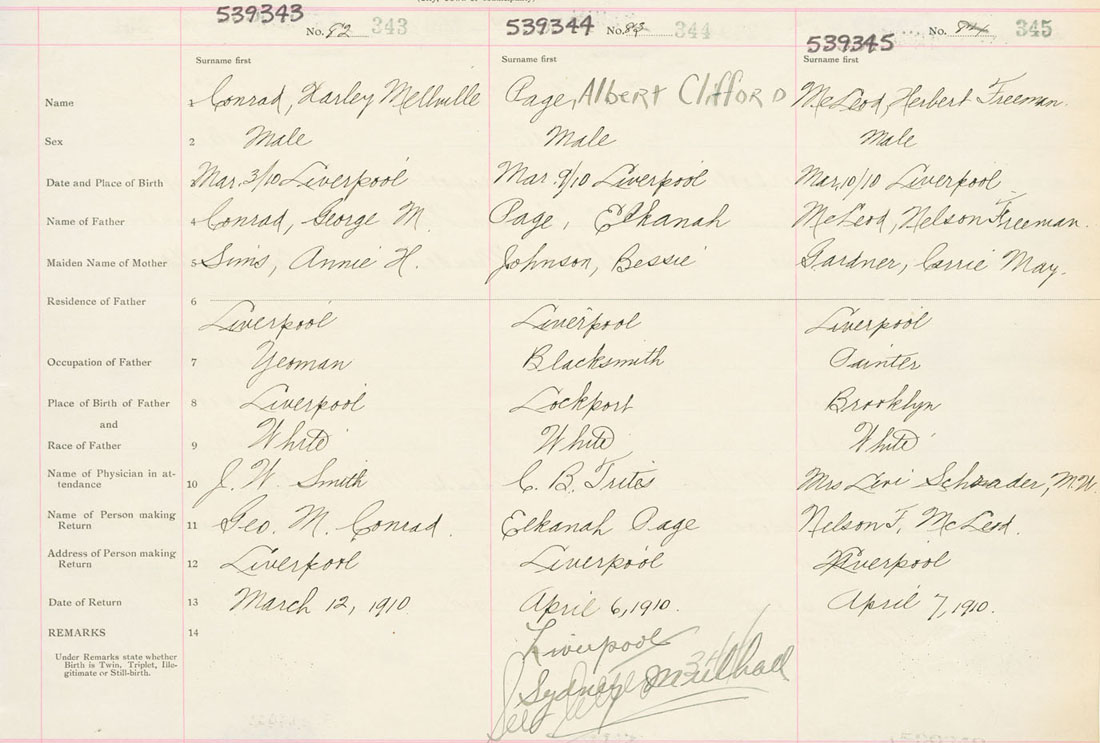 539343 No. 82 343 539344 No. 83 344 539345 No. 84 345
Surname first Surname first Surname first
Name 1 Conrad, Harley Mellville Page, Albert Clifford McLeod, Herbert Freeman.
Sex 2 Male Male Male
Date and Place of Birth 3 Mar. 3/10 Liverpool Mar. 9/10 Liverpool Mar. 10/10 Liverpool
Name of Father 4 Conrad, George M. Page, Elkanah McLeod, Nelson Freeman.
Maiden Name of Mother 5 Sims, Annie H. Johnson, Bessie Gardner, Carrie May.
Residence of Father 6
Liverpool Liverpool Liverpool
Occupation of Father 7 Yeoman Blacksmith Painter
Place of Birth of Father 8 Liverpool Lockport Brooklyn
and
Race of Father 9 White White White
Name of Physician in at-
tendance 10 J. W. Smith C. B. Trites Mrs Levi Schrader, M.W.
Name of Person making
Return 11 Geo. M. Conrad. Elkanah Page Nelson F. McLeod.
Address of Person making
Return 12 Liverpool Liverpool Liverpool
Date of Return 13 March 12, 1910. April 6, 1910. April 7, 1910.
REMARKS 14
Liverpool
Under Remarks state whether
Birth is Twin, Triplet, Ille-
gitimate or Still-birth.
Sydney